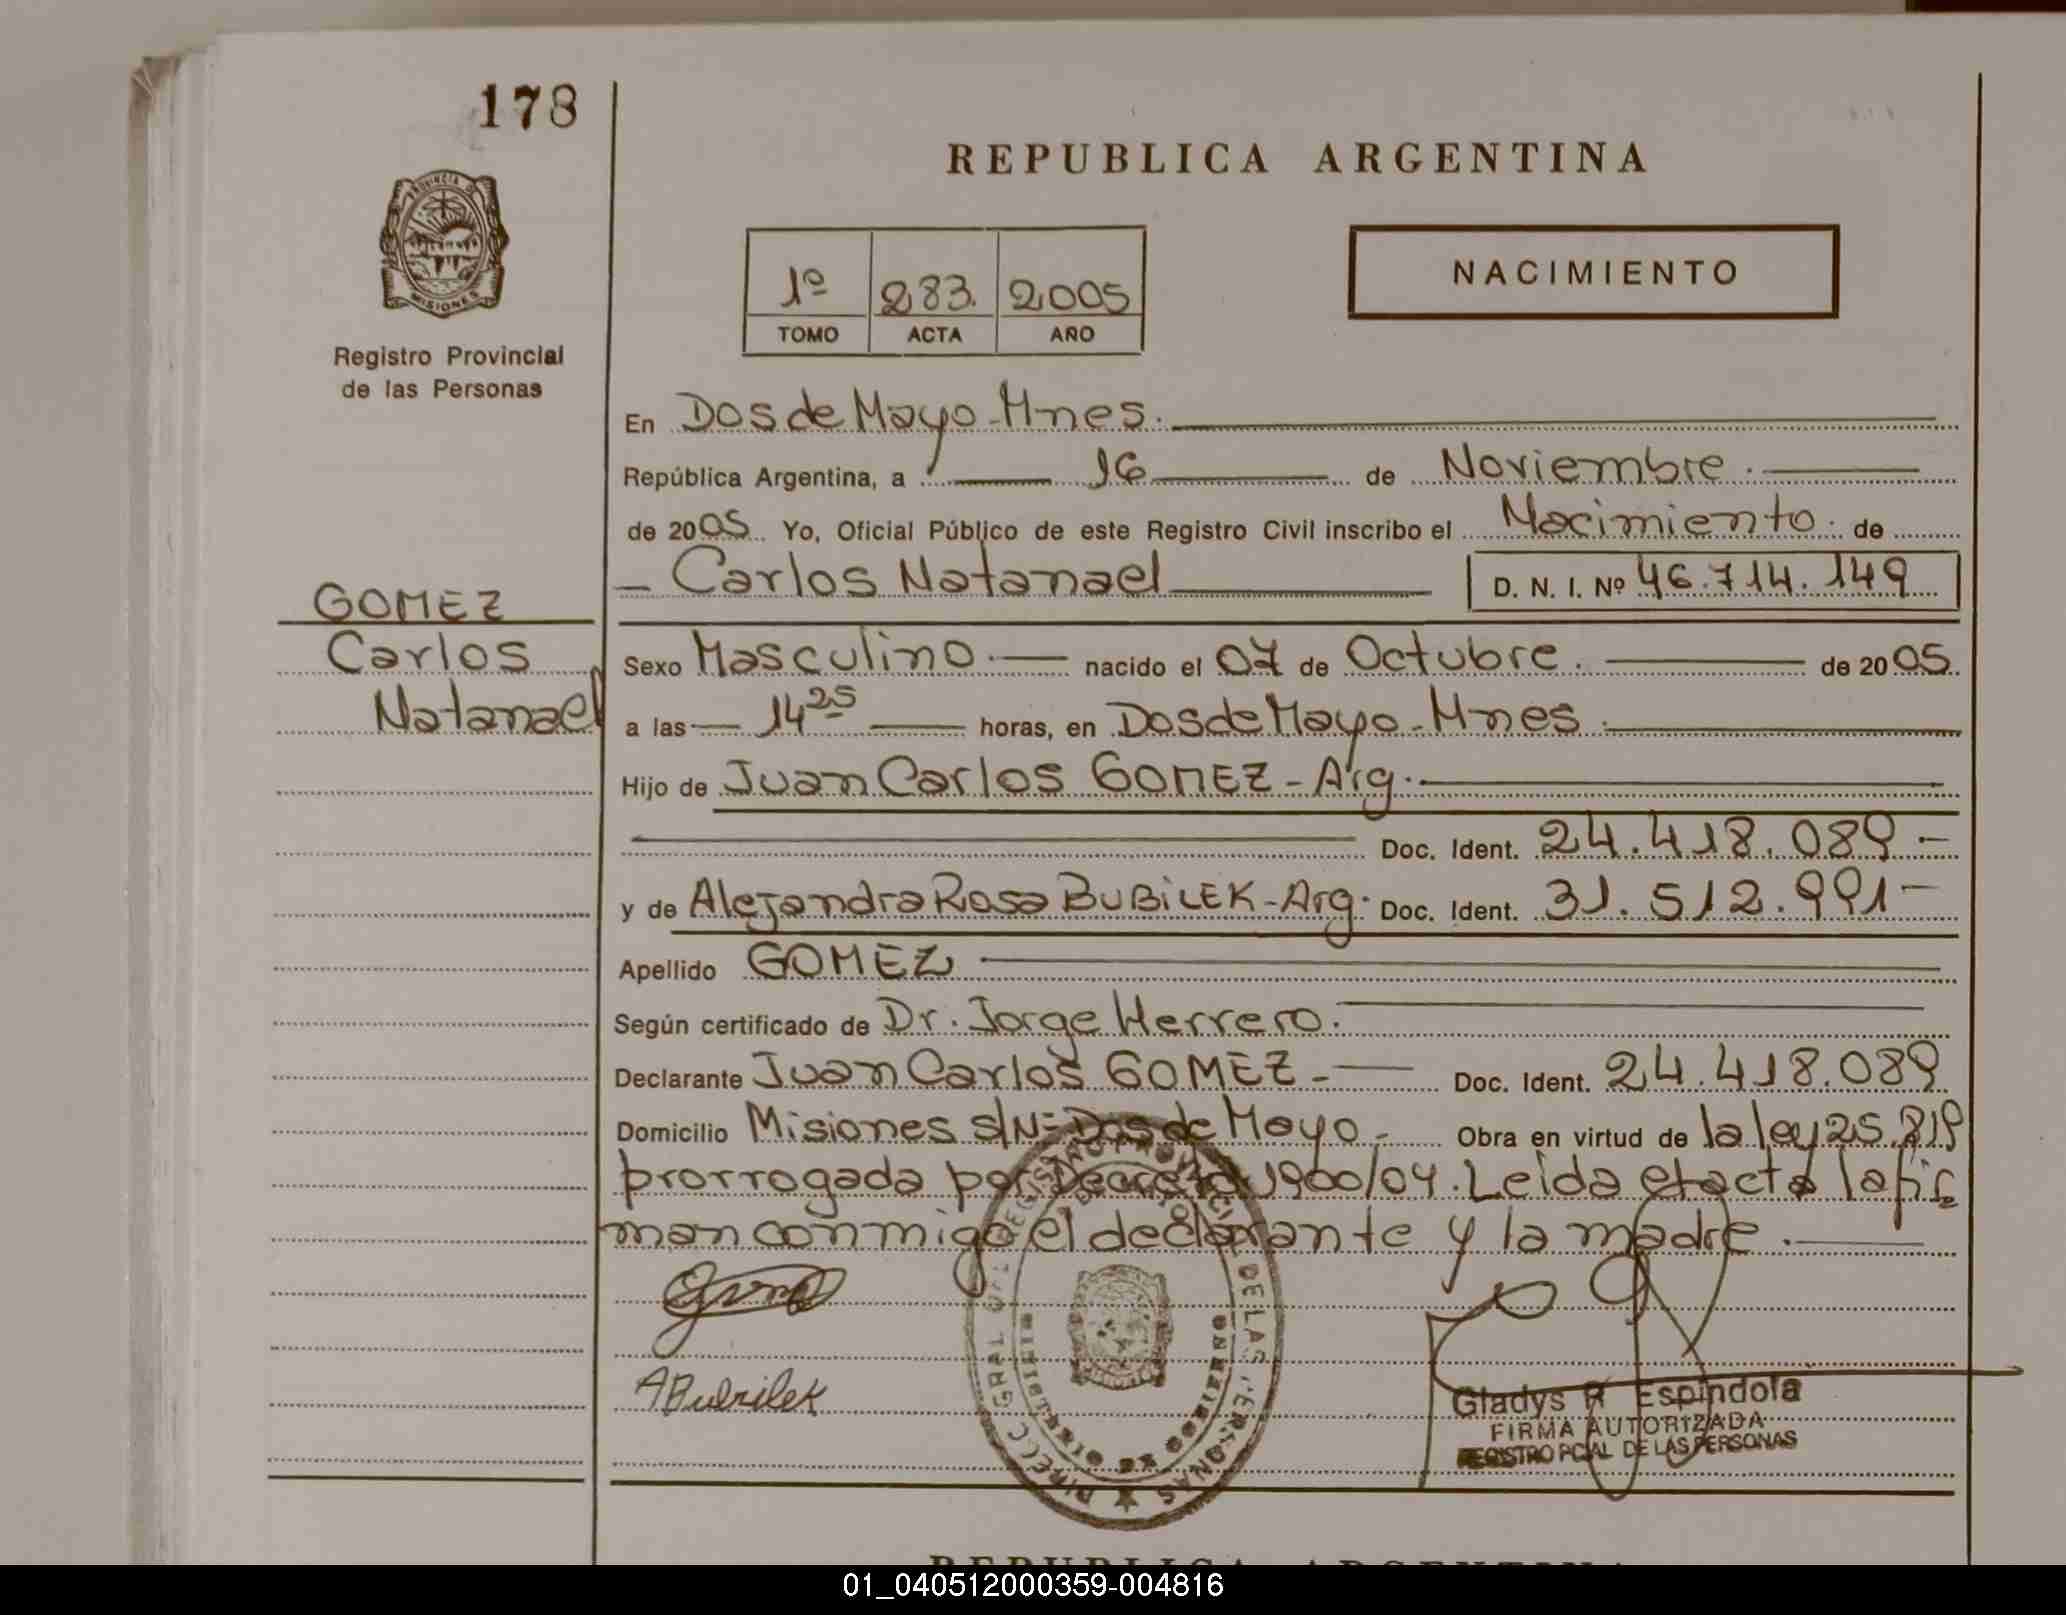 178
REPUBLICA ARGENTINA
PROVINCIA DE
MISIONES
Registro Provincial
de las Personas
1º 283. 2005
TOMO ACTA AÑO
NACIMIENTO
En Dos de Mayo - Mnes.
República Argentina, a 16 de Noviembre.
de 2005 Yo, Oficial Público de este Registro Civil inscribo el Nacimiento. de
- Carlos Natanael D. N. I. Nº 46.714.149
GOMEZ
Carlos
Natanael
Sexo Masculino. nacido el 07 de Octubre. de 2005.
a las 14 25 horas, en Dos de Mayo - Mnes.
Hijo de Juan Carlos GOMEZ - Arg.
Doc. Ident. 24.418.089 -
y de Alejandra Rosa BUBiLEK - Arg. Doc. Ident. 31.512.991 -
Apellido GOMEZ
Según certificado de Dr. Jorge Herrero.
Declarante Juan Carlos GOMEZ - Doc. Ident. 24.418.089
Domicilio Misiones s/Nº Dos de Mayo - Obra en virtud de la ley 25.819
prorrogada por Decreto 1900/04. Leída el acta la fir
man conmigo el declarante y la madre.
ABubilek
Gladys R Espindola
FIRMA AUTORIZADA
REGISTRO PCIAL DE LAS PERSONAS
DIRECC GRAL DEL REGISTRO PROVINCIAL DE LAS PERSONAS
MINISTERIO DE GOBIERNO
REPUBLICA ARGENTINA
01_040512000359-004816